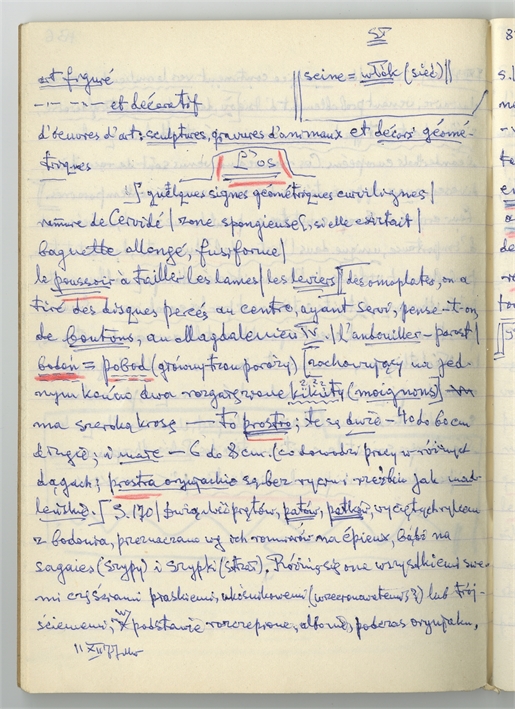 55
art figuré
seine = włók (sieć)
– – – – et décoratif
d'oeuvres d'art, sculptures, gravures d'animaux et décors géomé-
triques
L'os
quelques signes géométriques curvilignes /
ramure de Cervidé / zone spongieuse, si elle existait /
baguette allongé, fusiforme /
le poussoir à tailler les lames / les leviers / des omoplates, on a
tiré des disques percés au centre, ayant servi, pense-t-on
de boutons, au Magdalénien IV. / L'andouiller – parost /
boden = pobod (główny trzon poroży) [zachowujący na jed-
nym końcu dwa rozgałęzione kikuty (moignons)]
ma szeroką kresę — to prostro; te są duże – 40 do 60 cm
długie; i małe – 6 do 8 cm. (co dowodzi pracy w różnych
ciągach; prostra są bez rycin i rzeźbin jak
[S. 170/ prętów, patów, wyciętych rylcem
z bodowia, przeznaczano wg ich rozmiarów na épieux, bądź na
sagaies (szypy) i szypki (strzał). Różnią się one wszystkiemi swe-
mi częściami płaskiemi, lub trój-
ściennemi, w podstawie rozczepione, albowić, podczas oryniaku,